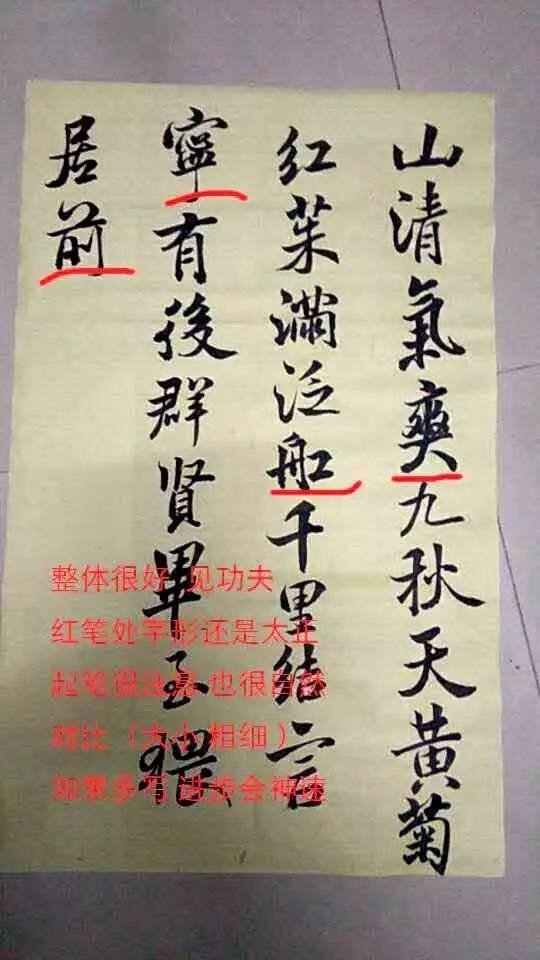 山清氣爽九秋天黄菊
紅茱滿泛船千里結言
寧有後群賢畢至猥
居前
整体很好 见功夫
红笔处字形还是太正
起笔很注意 也很自然
对比（大小 粗细 ）
如果多写 进步会神速